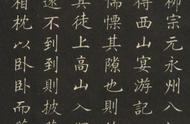 柳宗元永州
得西山宴游記
慄其隙也則
其徒上高山入
遠不到到則披
相枕以臥臥而